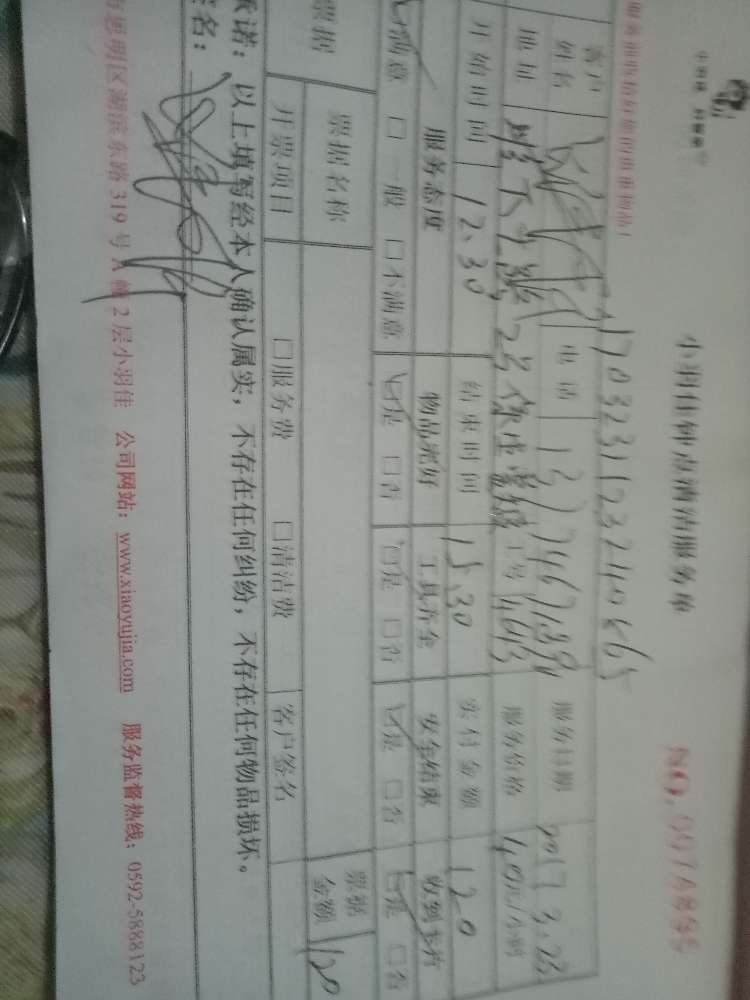 小羽佳 好管家
小羽佳钟点清洁服务单
NO.0074895
17032311232410865
客户姓名
电话
服务日期 2017 3.23
地址
工号
服务价格 40元/小时
开始时间 12.30
结束时间 15.30
实付金额 120
服务态度 物品完好 工具齐全 安全结束 收到卡片
☑满意 □一般 □不满意 ☑是 □否 ☑是 □否 ☑是 □否 ☑是 □否
票据
票据名称
票据金额 120
开票项目 □服务费 □清洁费 客户签名
承诺：以上填写经本人确认属实，不存在任何纠纷，不存在任何物品损坏。
签名：
思明区湖滨东路319号A幢2层小羽佳 公司网站：www.xiaoyujia.com 服务监督热线：0592-5888123